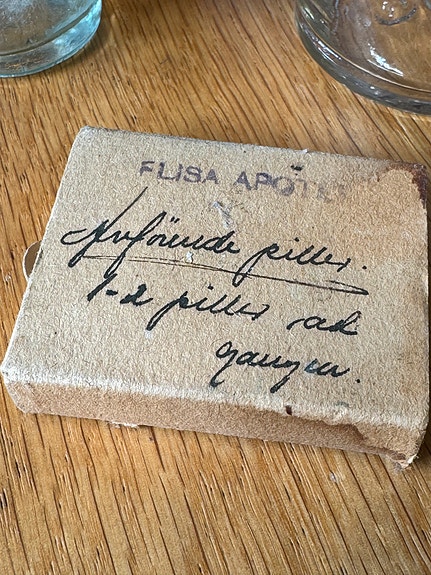 FLISA APOTEK
Avförende piller.
1-2 piller ad
gangen.